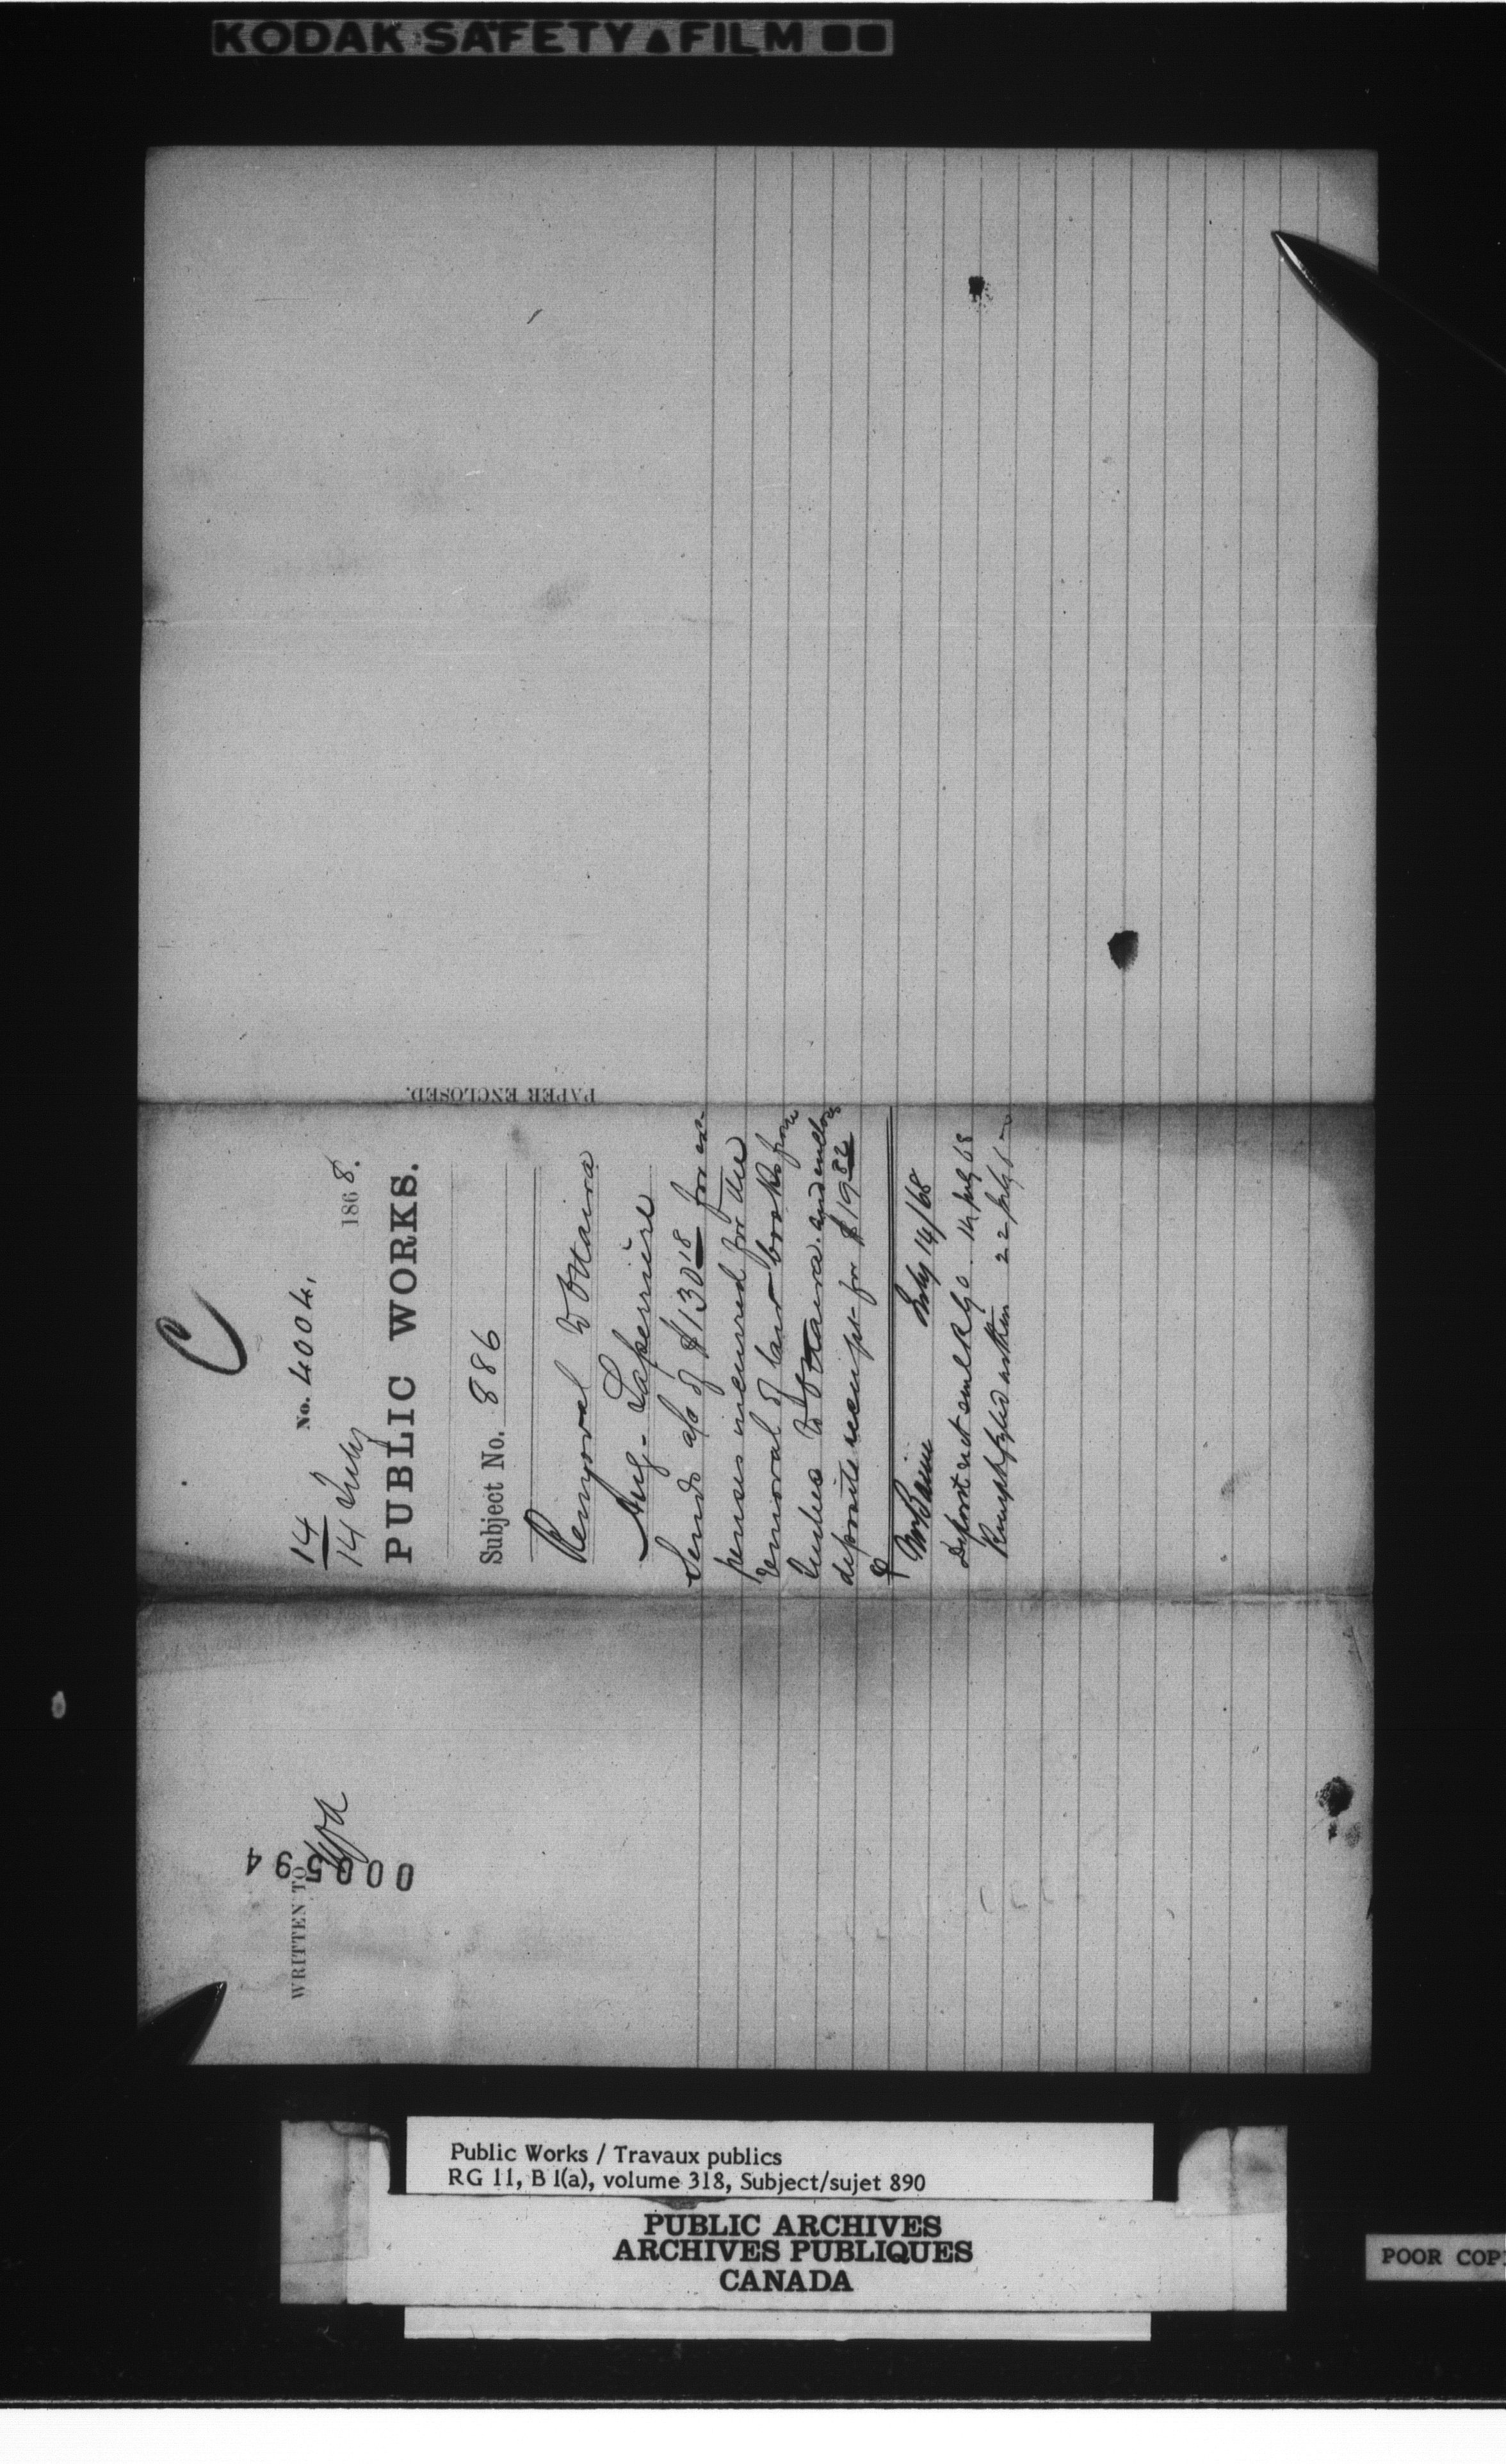 KODAK SAFETY FILM
C
No. 4004.
14
14 July 1868.
PUBLIC WORKS.
Subject No. 886
Removal to Ottawa
Aug. Laperrière
Sends a/c of $130 18 for ex-
penses incurred for the
removal of law books from
Quebec to Ottawa and encloses
deposite receipt for $19 82
Mr Baine July 14/68
Deposit rect 14 July 68
22 July
PAPER ENCLOSED.
WRITTEN TO
000594
Public Works / Travaux publics
RG 11, B 1(a), volume 318, Subject/sujet 890
PUBLIC ARCHIVES
ARCHIVES PUBLIQUES
CANADA
POOR COP